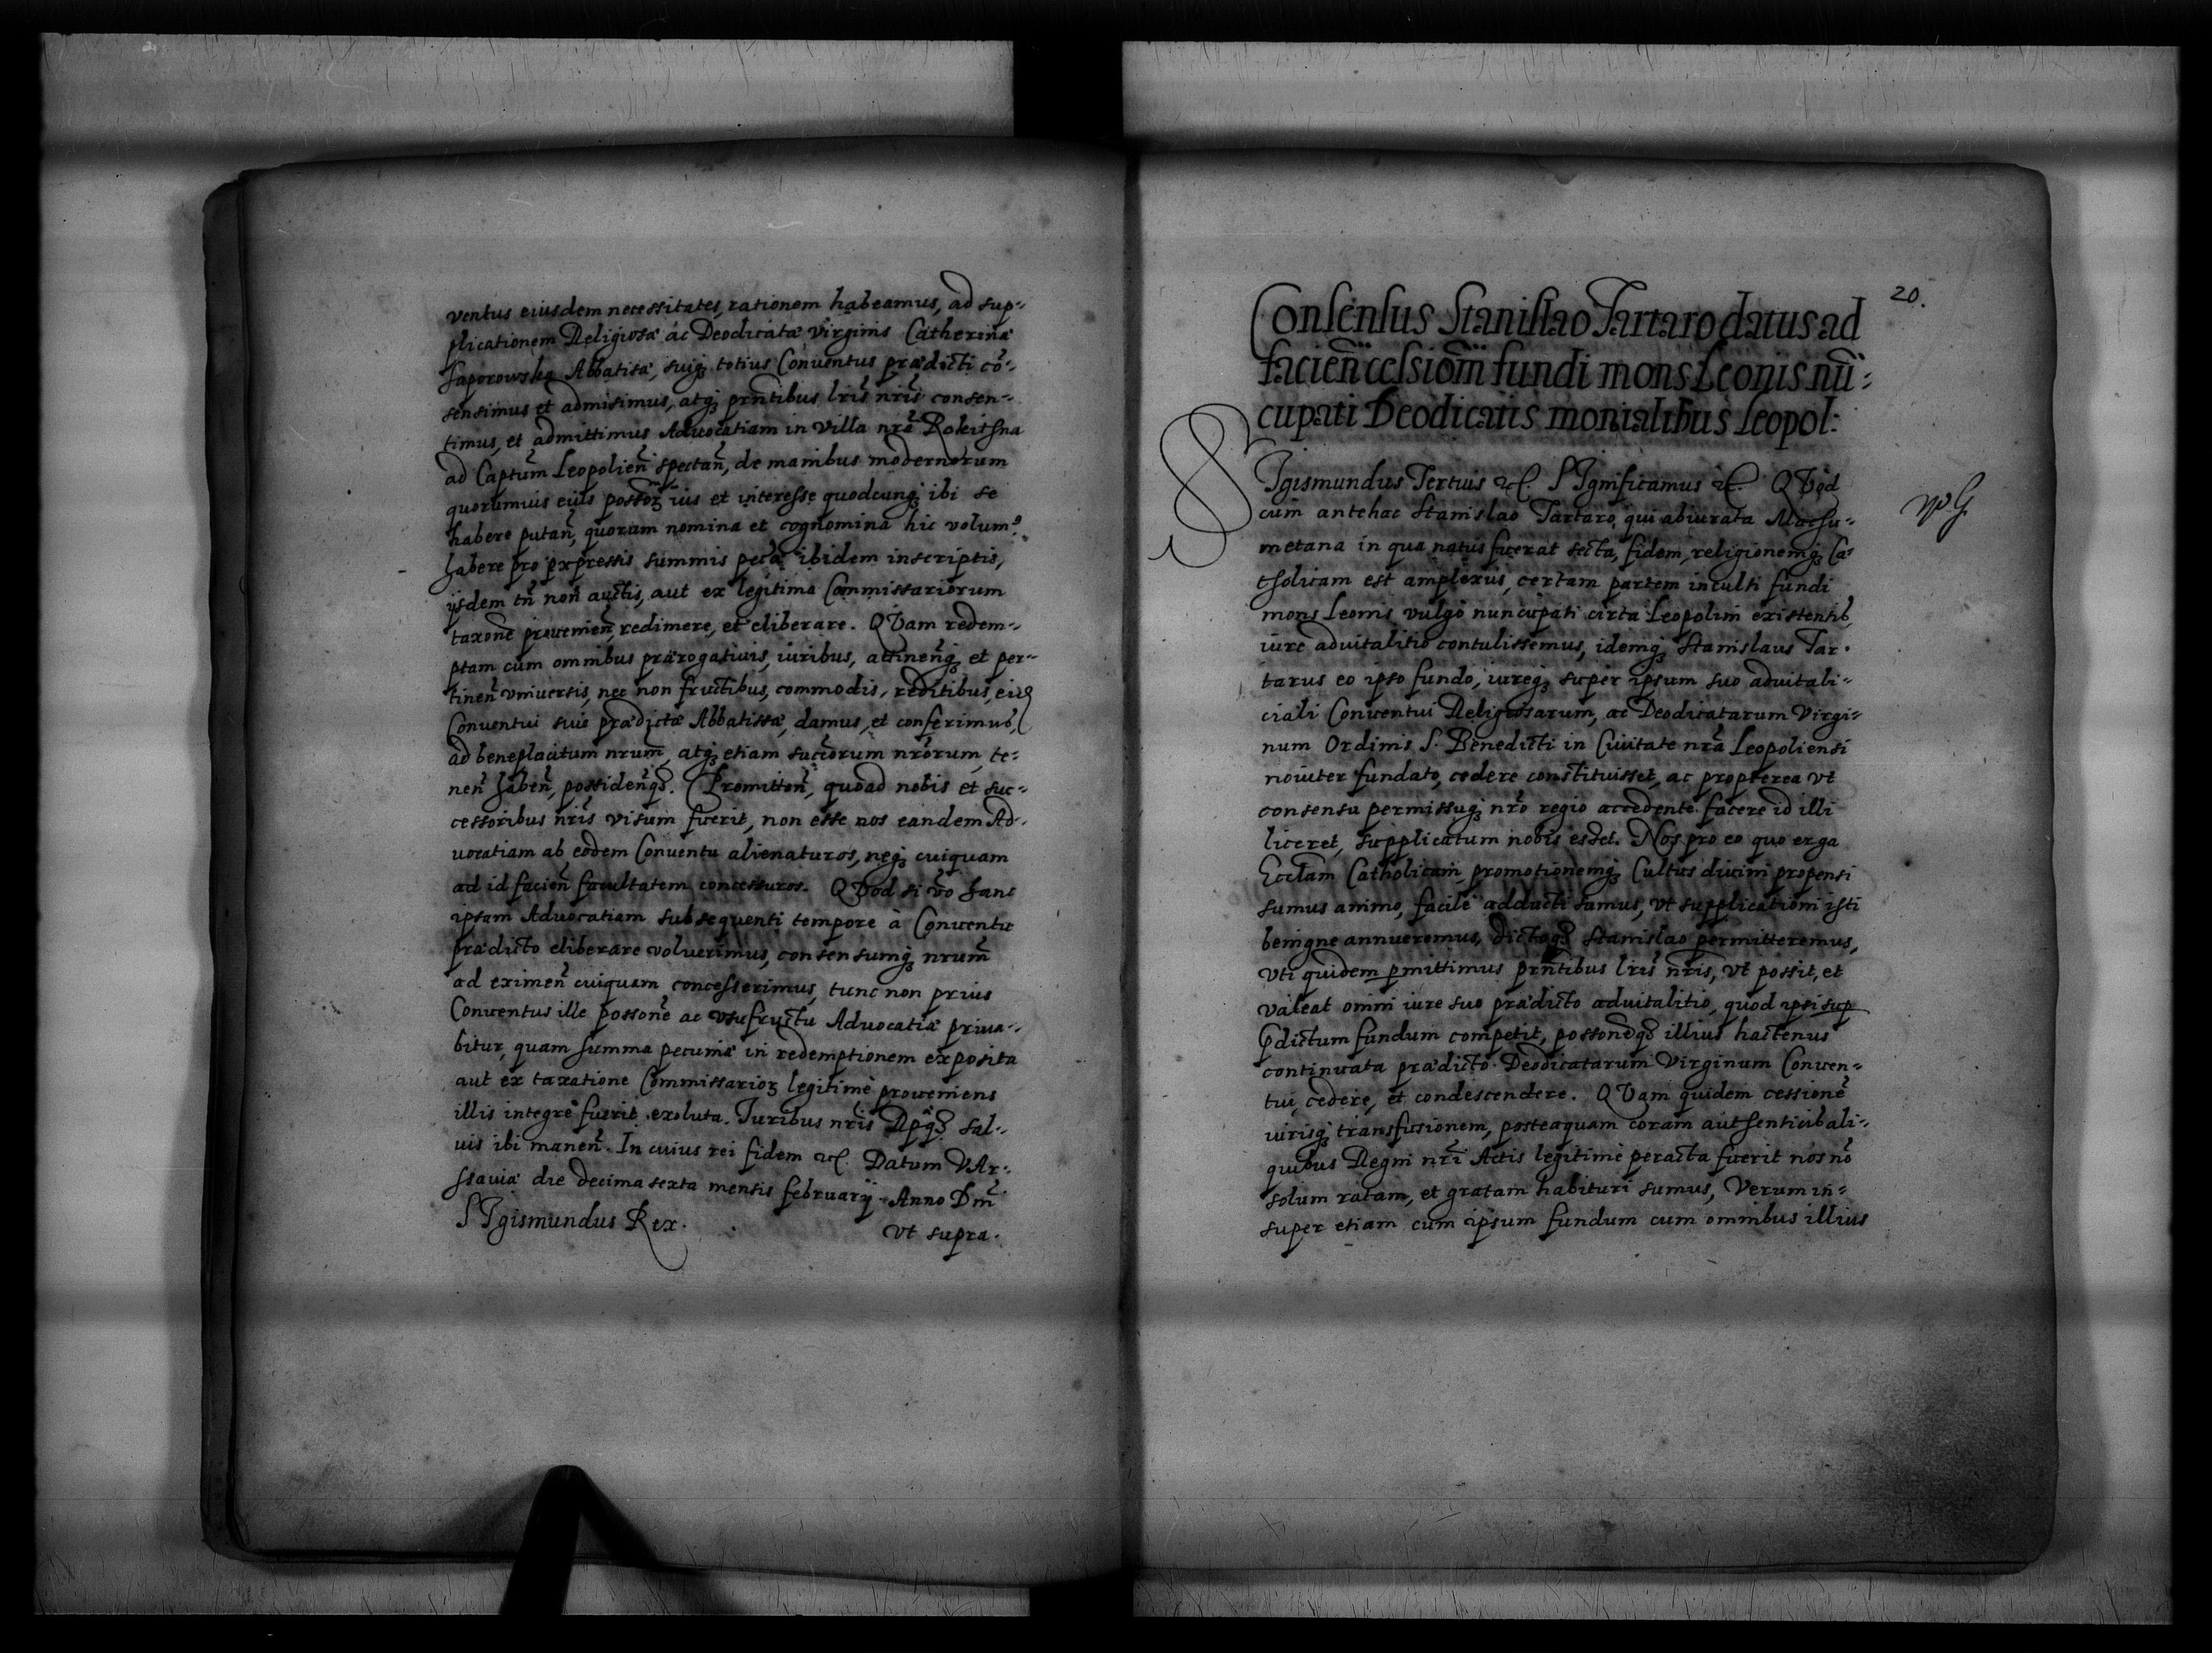 ventus eiusdem necessitates, rationem habeamus, ad sup-
plicationem Religiosæ ac Deodicatæ Virginis Catherinæ
Saporowska Abbatisæ, suiq₃ totius Conventus prædicti cō-
sensimus et admisimus, atq₃ prñtibus lris nris consen-
timus, et admittimus Advocatiam in villa nra Rokitsna
ad Captum Leopolien̄ spectan̄, de manibus modernorum
quorumvis eius possor₃ ius et interesse quodcunq₃ ibi se
habere putan̄, quorum nomina et cognomina hic volum⁹
habere pro expressis summis peca ibidem inscriptis,
ijsdem tn̄ non auctis, aut ex legitima Commissariorum
taxone provenien̄, redimere, et eliberare. QVam redem-
ptam cum omnibus prærogativis, iuribus, attinen̄q₃ et per-
tinen̄ vniversis, nec non fructibus, commodis, reditibus, eid
Conventui suæ prædictæ Abbatissæ, damus, et conferimus,
ad beneplacitum nrum, atq₃ etiam succiorum nrorum, te-
nen̄ haben̄, possiden̄q₃. Promitten̄, quoad nobis et suc-
cessoribus nris visum fuerit, non esse nos eandem Ad-
uocatiam ab eodem Conventu alienaturos, neq₃ cuiquam
ad id facien̄ facultatem concessuros. QVod si v̄o hanc
ipsam Advocatiam subsequenti tempore à Conventu
prædicto eliberare voluerimus, consensumq₃ nrum
ad eximen̄ cuiquam concesserimus, tunc non prius
Conventus ille possone ac vsufructu Advocatiæ priva-
bitur, quam summa pecuniæ in redemptionem exposita
aut ex taxatione Commissarior₃ legitimè proveniens
illis integrè fuerit exoluta. Iuribus nris Rpq₃ sal-
uis ibi manen̄. In cuius rei fidem etc. Datum VAr-
ssaviæ die decima sexta mensis februarij. Anno Dm̄
SIgismundus Rex.
vt supra.
20.
Consensus Stanislao Tartaro datus ad
facien̄ cessiom̄ fundi mons Leonis nū-
cupati Deodicatis monialibus Leopol:
SIgismundus Tertius etc. SIgnificamus etc. QVod
cum antehac Stanislao Tartaro, qui abiurata Machu-
metana in qua natus fuerat secta, fidem, religionemq₃ Ca-
tholicam est amplexus, certam partem inculti fundi
mons Leonis vulgo nuncupati circa Leopolim existentis,
iure advitalitio contulissemus, idemq₃ Stanislaus Tar-
tarus eo ipso fundo, iureq₃ super ipsum suo advitali-
ciali Conventui Religiosarum, ac Deodicatarum Virgi-
num Ordinis S. Benedicti in Civitate nra Leopoliensi
noviter fundato, cedere constituisset, ac propterea vt
consensu permissuq₃ nro regio accedente facere id illi
liceret, supplicatum nobis esset. Nos pro eo quo erga
Eccl̄am Catholicam, promotionemq₃ Cultus divini propensi
sumus animo, facilè adducti sumus, vt supplicationi isti
benigne annueremus, dictoq₃ Stanislao permitteremus,
vti quidem pmittimus prñtibus lris nris, vt possit, et
valeat omni iure suo prædicto advitalitio, quod ipsi sup
pdictum fundum competit, possoneq₃ illius hactenus
continuata prædicto Deodicatarum Virginum Conven-
tui, cedere, et condescendere. QVam quidem cessione
iurisq₃ transfusionem, posteaquam coram authenticis ali-
quibus Regni nri Actis legitimè peracta fuerit nos nō
solum ratam, et gratam habituri sumus, Verum in-
super etiam cum ipsum fundum cum omnibus illius